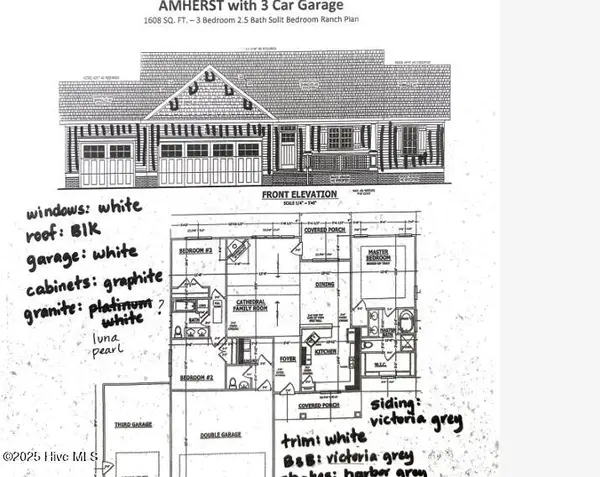 AMHERST with 3 Car Garage
1608 SQ. FT. – 3 Bedroom 2.5 Bath Split Bedroom Ranch Plan
FRONT ELEVATION
SCALE 1/4" - 1'0"
windows: white
roof: Blk
garage: white
cabinets: graphite
granite: platinum ?
white
luna
pearl
BEDROOM #3
COVERED PORCH
MASTER
BEDROOM
DINING
CATHEDRAL
FAMILY ROOM
BATH
MASTER
BATH
KITCHEN
FOYER
W.I.C.
BEDROOM #2
COVERED PORCH
siding:
victoria grey
THIRD GARAGE
DOUBLE GARAGE
trim: white
B&B: victoria grey
shakes: harbor grey
©2025 Hive MLS